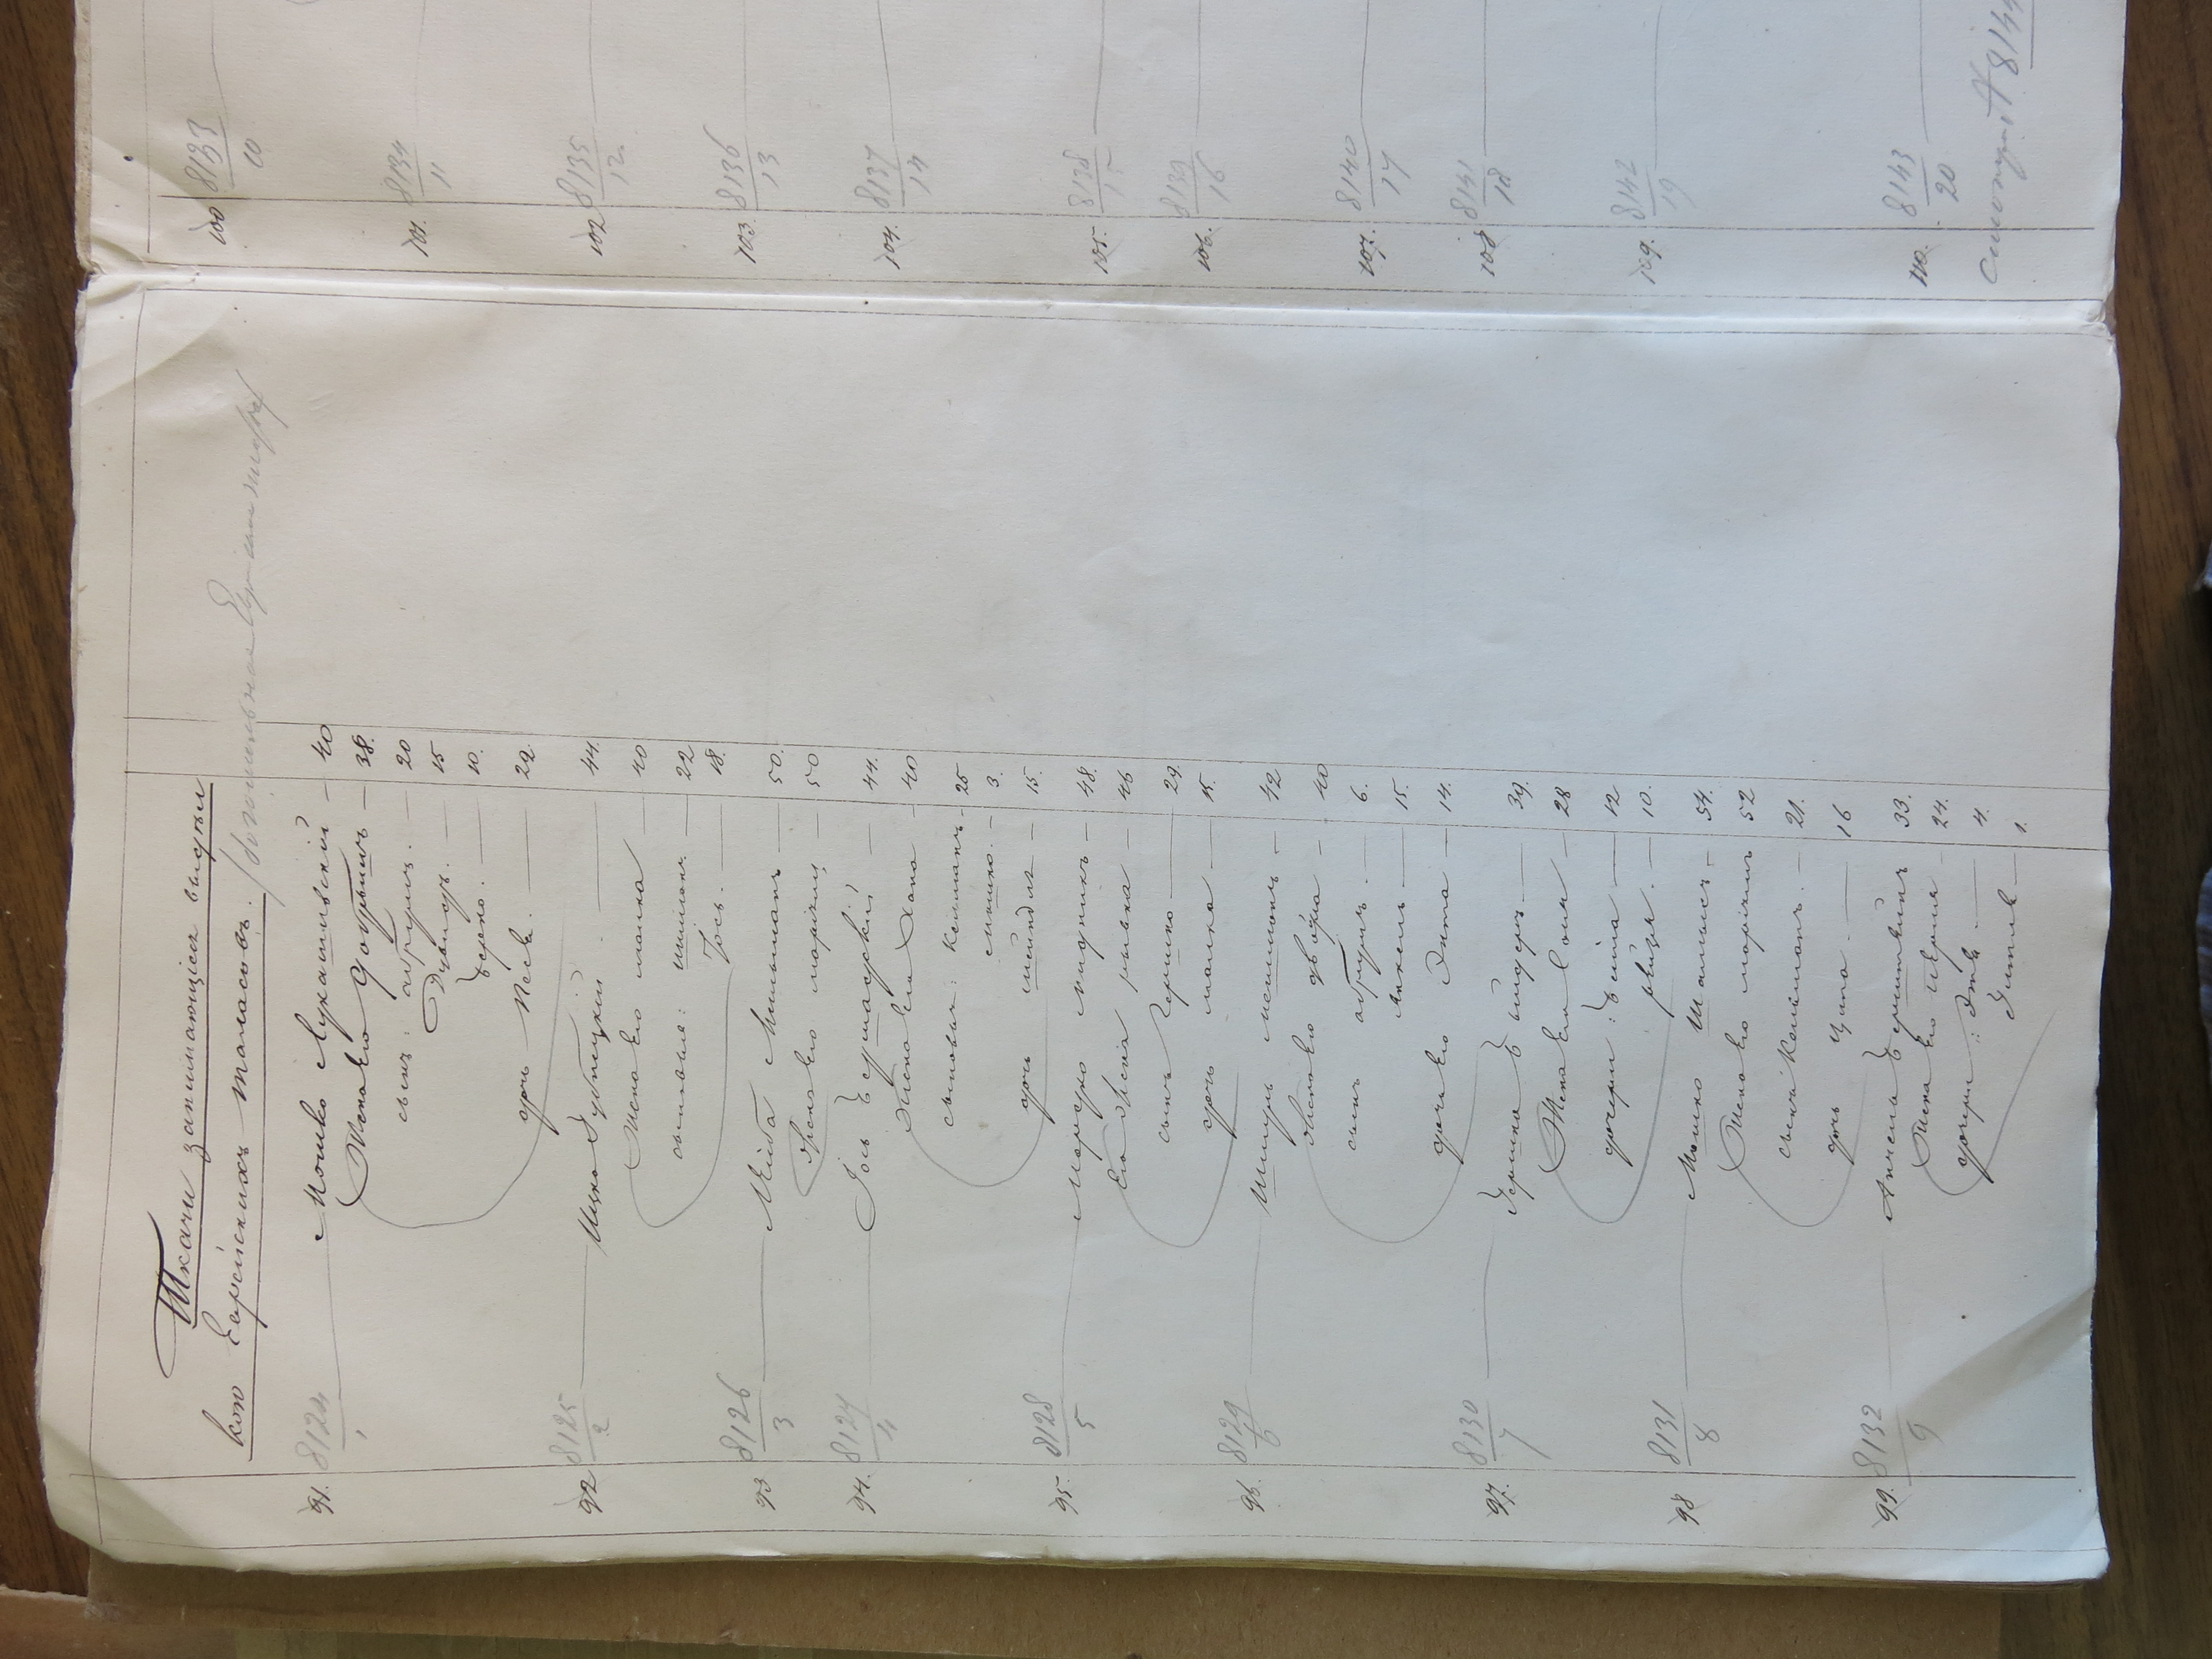 Ткачи занимающіеся выдѣл
кою Еврейскихъ таласовъ.
91. 8124/1 Мошко Лухательскій — 40
Жена его Добрышъ — 38.
сынъ: аврумъ. — 20
Дувидъ. — 15
берко. — 10.
дочь Песя. — 22
92 8125/2 Ицко Дубицкій. — 44.
Жена его малка — 40
сыновья: шимонъ — 22
Іось. — 18.
93 8126/3 Лейба Мильманъ — 50.
Жена его марьямъ — 50
94. 8127/4 Іось — 44.
Жена его Хана — 40
сыновья: Кельманъ — 25
мошко. — 3.
дочь шейндля — 15.
95. 8128/5 Мордко — 48.
Его Жена рывка — 46
сынъ Гершко — 24.
дочь малка — 15.
96. 8129/6 Шмуль — 42
Жена его двойра — 40
сынъ абрумъ. — 6.
Янкель — 15.
дочь его Эшта — 14.
97. 8130/7 39.
Жена его Соня — 28
дочери: бейла — 12
рейзя. — 10.
98 8131/8 Мошко — 54.
Жена его марьямъ 52
сынъ Кельманъ. — 21.
дочь Ципа — 16
99. 8132/9 Анчель 33.
Жена его перля 24.
дочери: Этя. — 4.
Гитля — 1.
100 8133/10
101. 8134/11
102 8135/12.
103. 8136/13
104. 8137/14
105. 8138/15
106. 8139/16
107. 8140/17
108 8141/18
109. 8142/19
110. 8143/20
Смотри № 8144